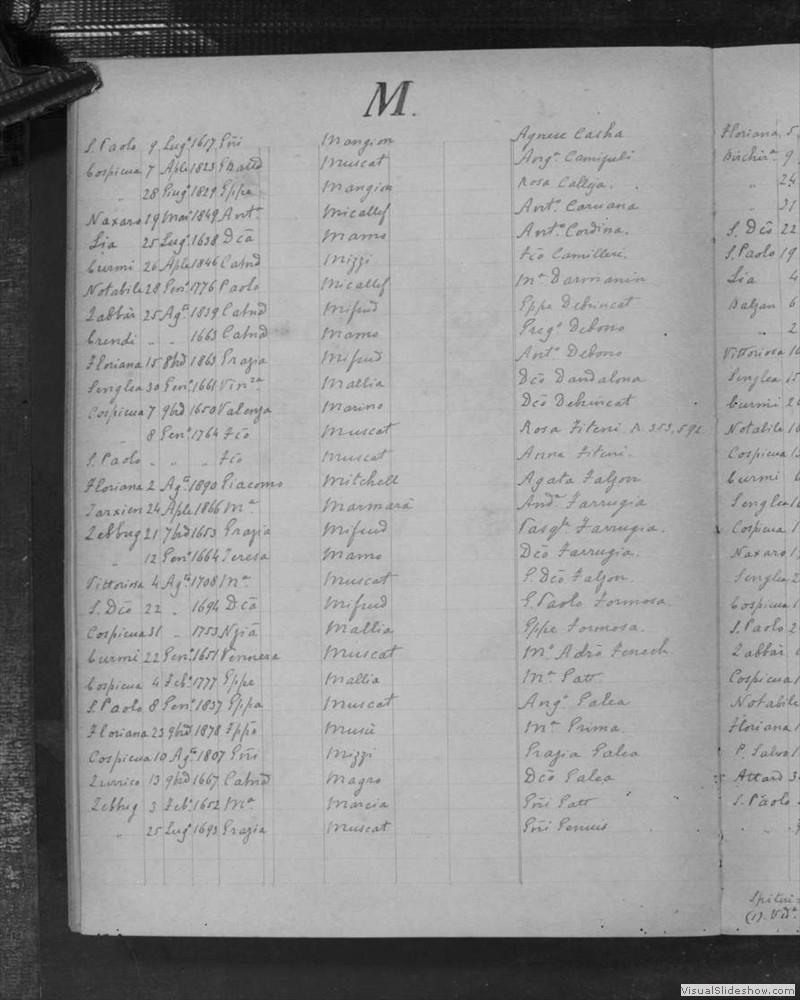 M.
S. Paolo 9 Lug.º 1617 Gñi Mangion Agnese Casha
Cospicua 7 Aple 1823 Muscat Ang.ª Camiguli
" 28 Giug.º 1829 Gppe Mangion Rosa Calleja.
Naxaro 19 Mar. 1849 Ant.º Micallef Ant.ª Caruana
Lia 25 Lug.º 1638 Dcã Mamo Ant.ª Cordina.
Curmi 26 Aple 1846 Catnã Mizzi Fcõ Camilleri.
Notabile 28 Gen.º 1776 Paolo Micallef M.ª Darmanin
Zabbar 25 Ag.º 1839 Catnã Mifsud Gppe Debrincat
Crendi " " 1663 Catnã Mamo Greg.º Debono
Floriana 15 8brẽ 1863 Grazia Mifsud Ant.º Debono
Senglea 30 Gen.º 1661 Vin.za Mallia Dcõ Dandalona
Cospicua 7 9brẽ 1650 Valenza Marino Dcõ Debrincat
" 8 Gen.º 1764 Fcõ Muscat Rosa Fiteni R 353, 592
S. Paolo " " " Fcõ Muscat Anna Fiteni.
Floriana 2 Ag.º 1890 Giacomo Mitchell Agata Falzon
Tarxien 24 Aple 1866 M.ª Marmarà And.ª Farrugia
Zebbug 21 7brẽ 1653 Grazia Mifsud Pasq.le Farrugia.
" 12 Gen.º 1664 Teresa Mamo Dcõ Farrugia.
Vittoriosa 4 Ag.º 1708 M.ª Muscat G. Dcõ Falzon
S. Dcõ 22 " 1694 Dcã Mifsud G. Paolo Formosa
Cospicua 31 " 1753 Nziã Mallia Gppe Formosa.
Curmi 22 Gen.º 1651 Vennera Muscat M.º Adrõ Fenech
Cospicua 4 Feb.º 1777 Gppe Mallia M.ª Gatt
S. Paolo 8 Gen.º 1837 Gppa Muscat Ang.º Galea
Floriana 23 9brẽ 1878 Fppõ Musù M.ª Grima
Cospicua 10 Ag.º 1807 Gñi Mizzi Grazia Galea
Zurrico 13 9brẽ 1667 Catnã Magro Dcõ Galea
Zebbug 3 Feb.º 1652 M.ª Marcia Gñi Gatt
" 25 Lug.º 1693 Grazia Muscat Gñi Genuis
Floriana 5
Birchir.ª 9
" 24
" 31
S. Dcõ 22
S. Paolo 19
Lia 4
Balzan 6
" 2
Vittoriosa
Senglea
Curmi
Notabile
Cospicua
Curmi
Senglea
Cospicua
Naxaro
Senglea
Cospicua
S. Paolo
Zabbar
Cospicua
Notabile
Floriana
P. Salvo
Attard
S. Paolo
Spiteri
(1). Ved.ª
VisualSlideshow.com